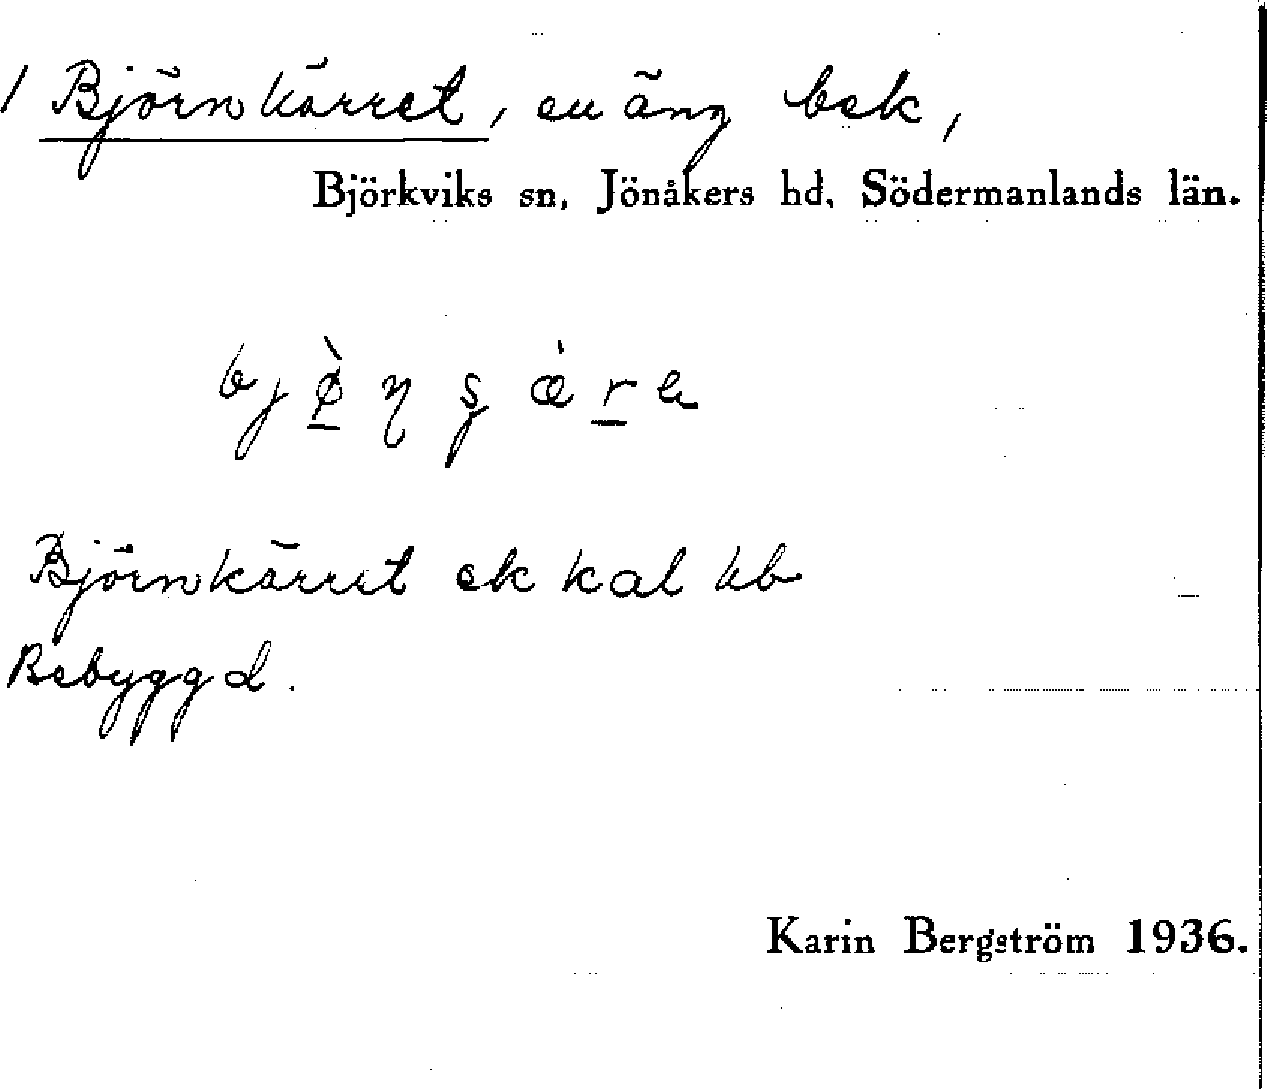 1 Björnkärret, en äng bek,
Björkviks sn, Jönåkers hd, Södermanlands län.
Björnkärret ek kal kb
Bebyggd.
Karin Bergström 1936.